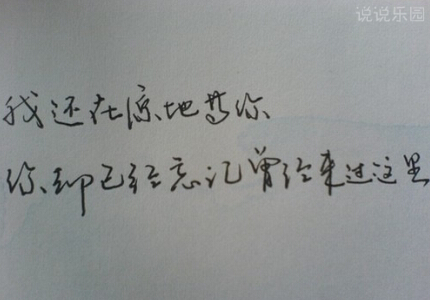 说说乐园
我还在原地等你
你却已经忘记曾经来过这里